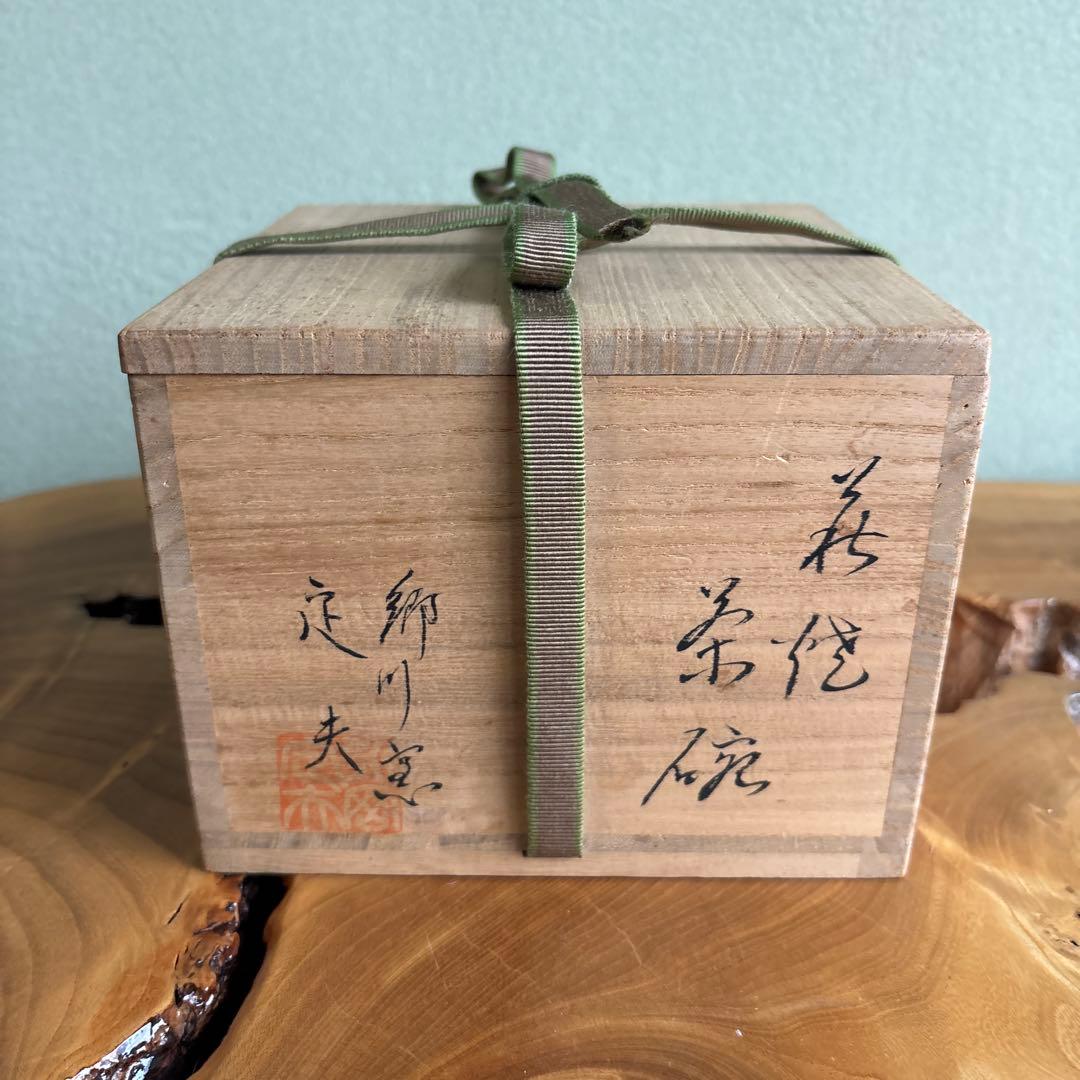 萩焼
茶碗
郷川窯
定夫